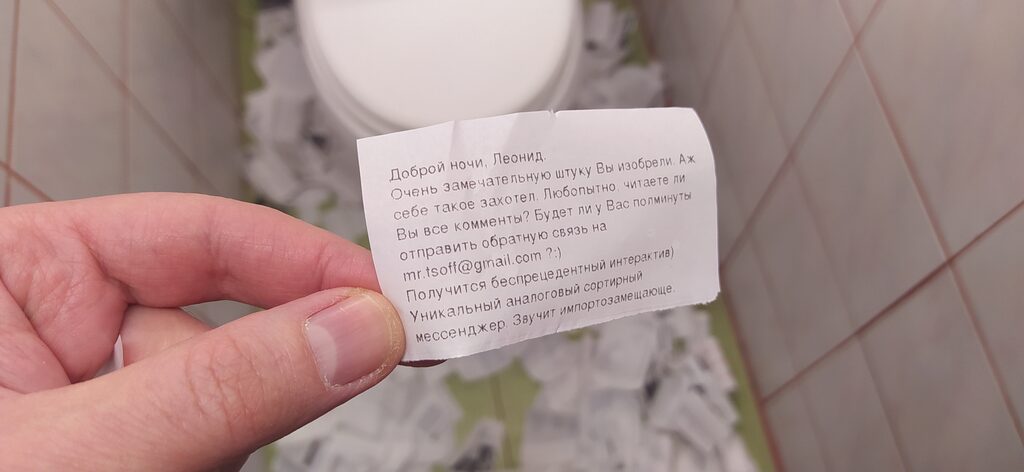 Доброй ночи, Леонид.
Очень замечательную штуку Вы изобрели. Аж
себе такое захотел. Любопытно, читаете ли
Вы все комменты? Будет ли у Вас полминуты
отправить обратную связь на
mr.tsoff@gmail.com ?:)
Получится беспрецедентный интерактив)
Уникальный аналоговый сортирный
мессенджер. Звучит импортозамещающе.